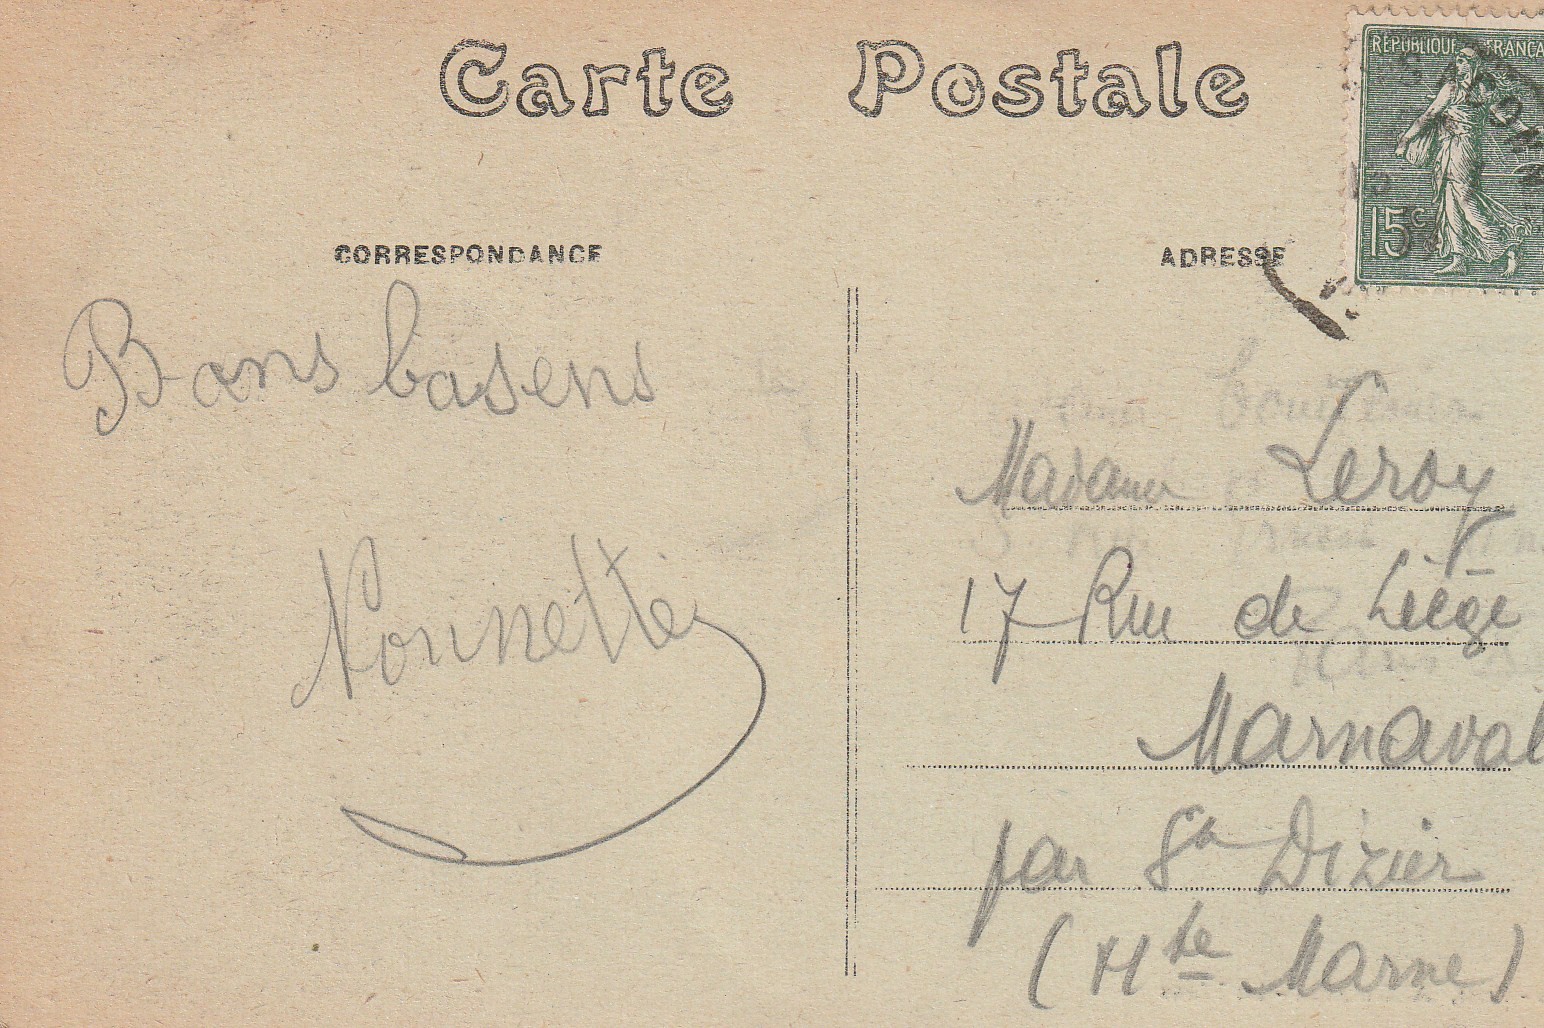 Carte Postale
RÉPUBLIQUE FRANÇA
15c
CORRESPONDANCE
ADRESSE
Bons basens
Nonnette
Madame Leroy
17 Rue de Liège
Marnaval
par St Dizier
(Hte Marne)